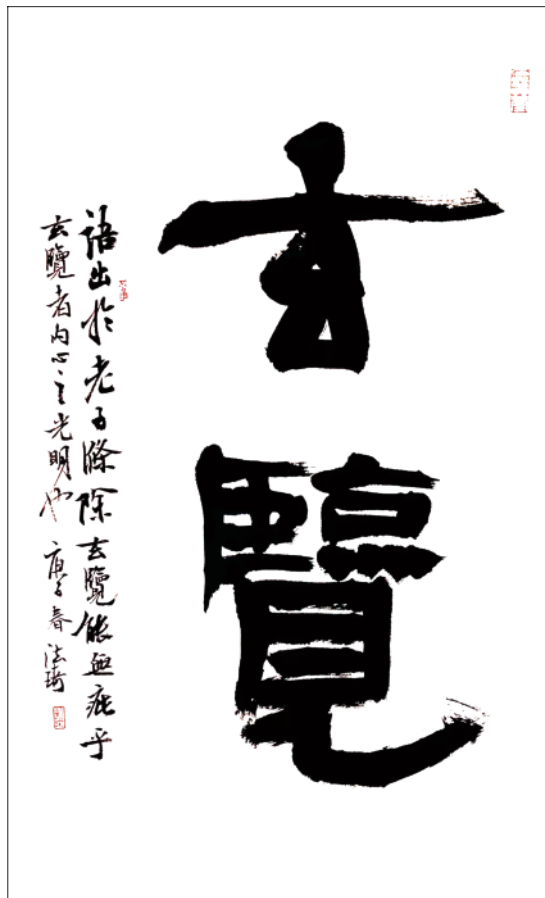 玄覽
語出於老子滌除玄覽能無疵乎
玄覽者內心之光明也 庚子春 法琦